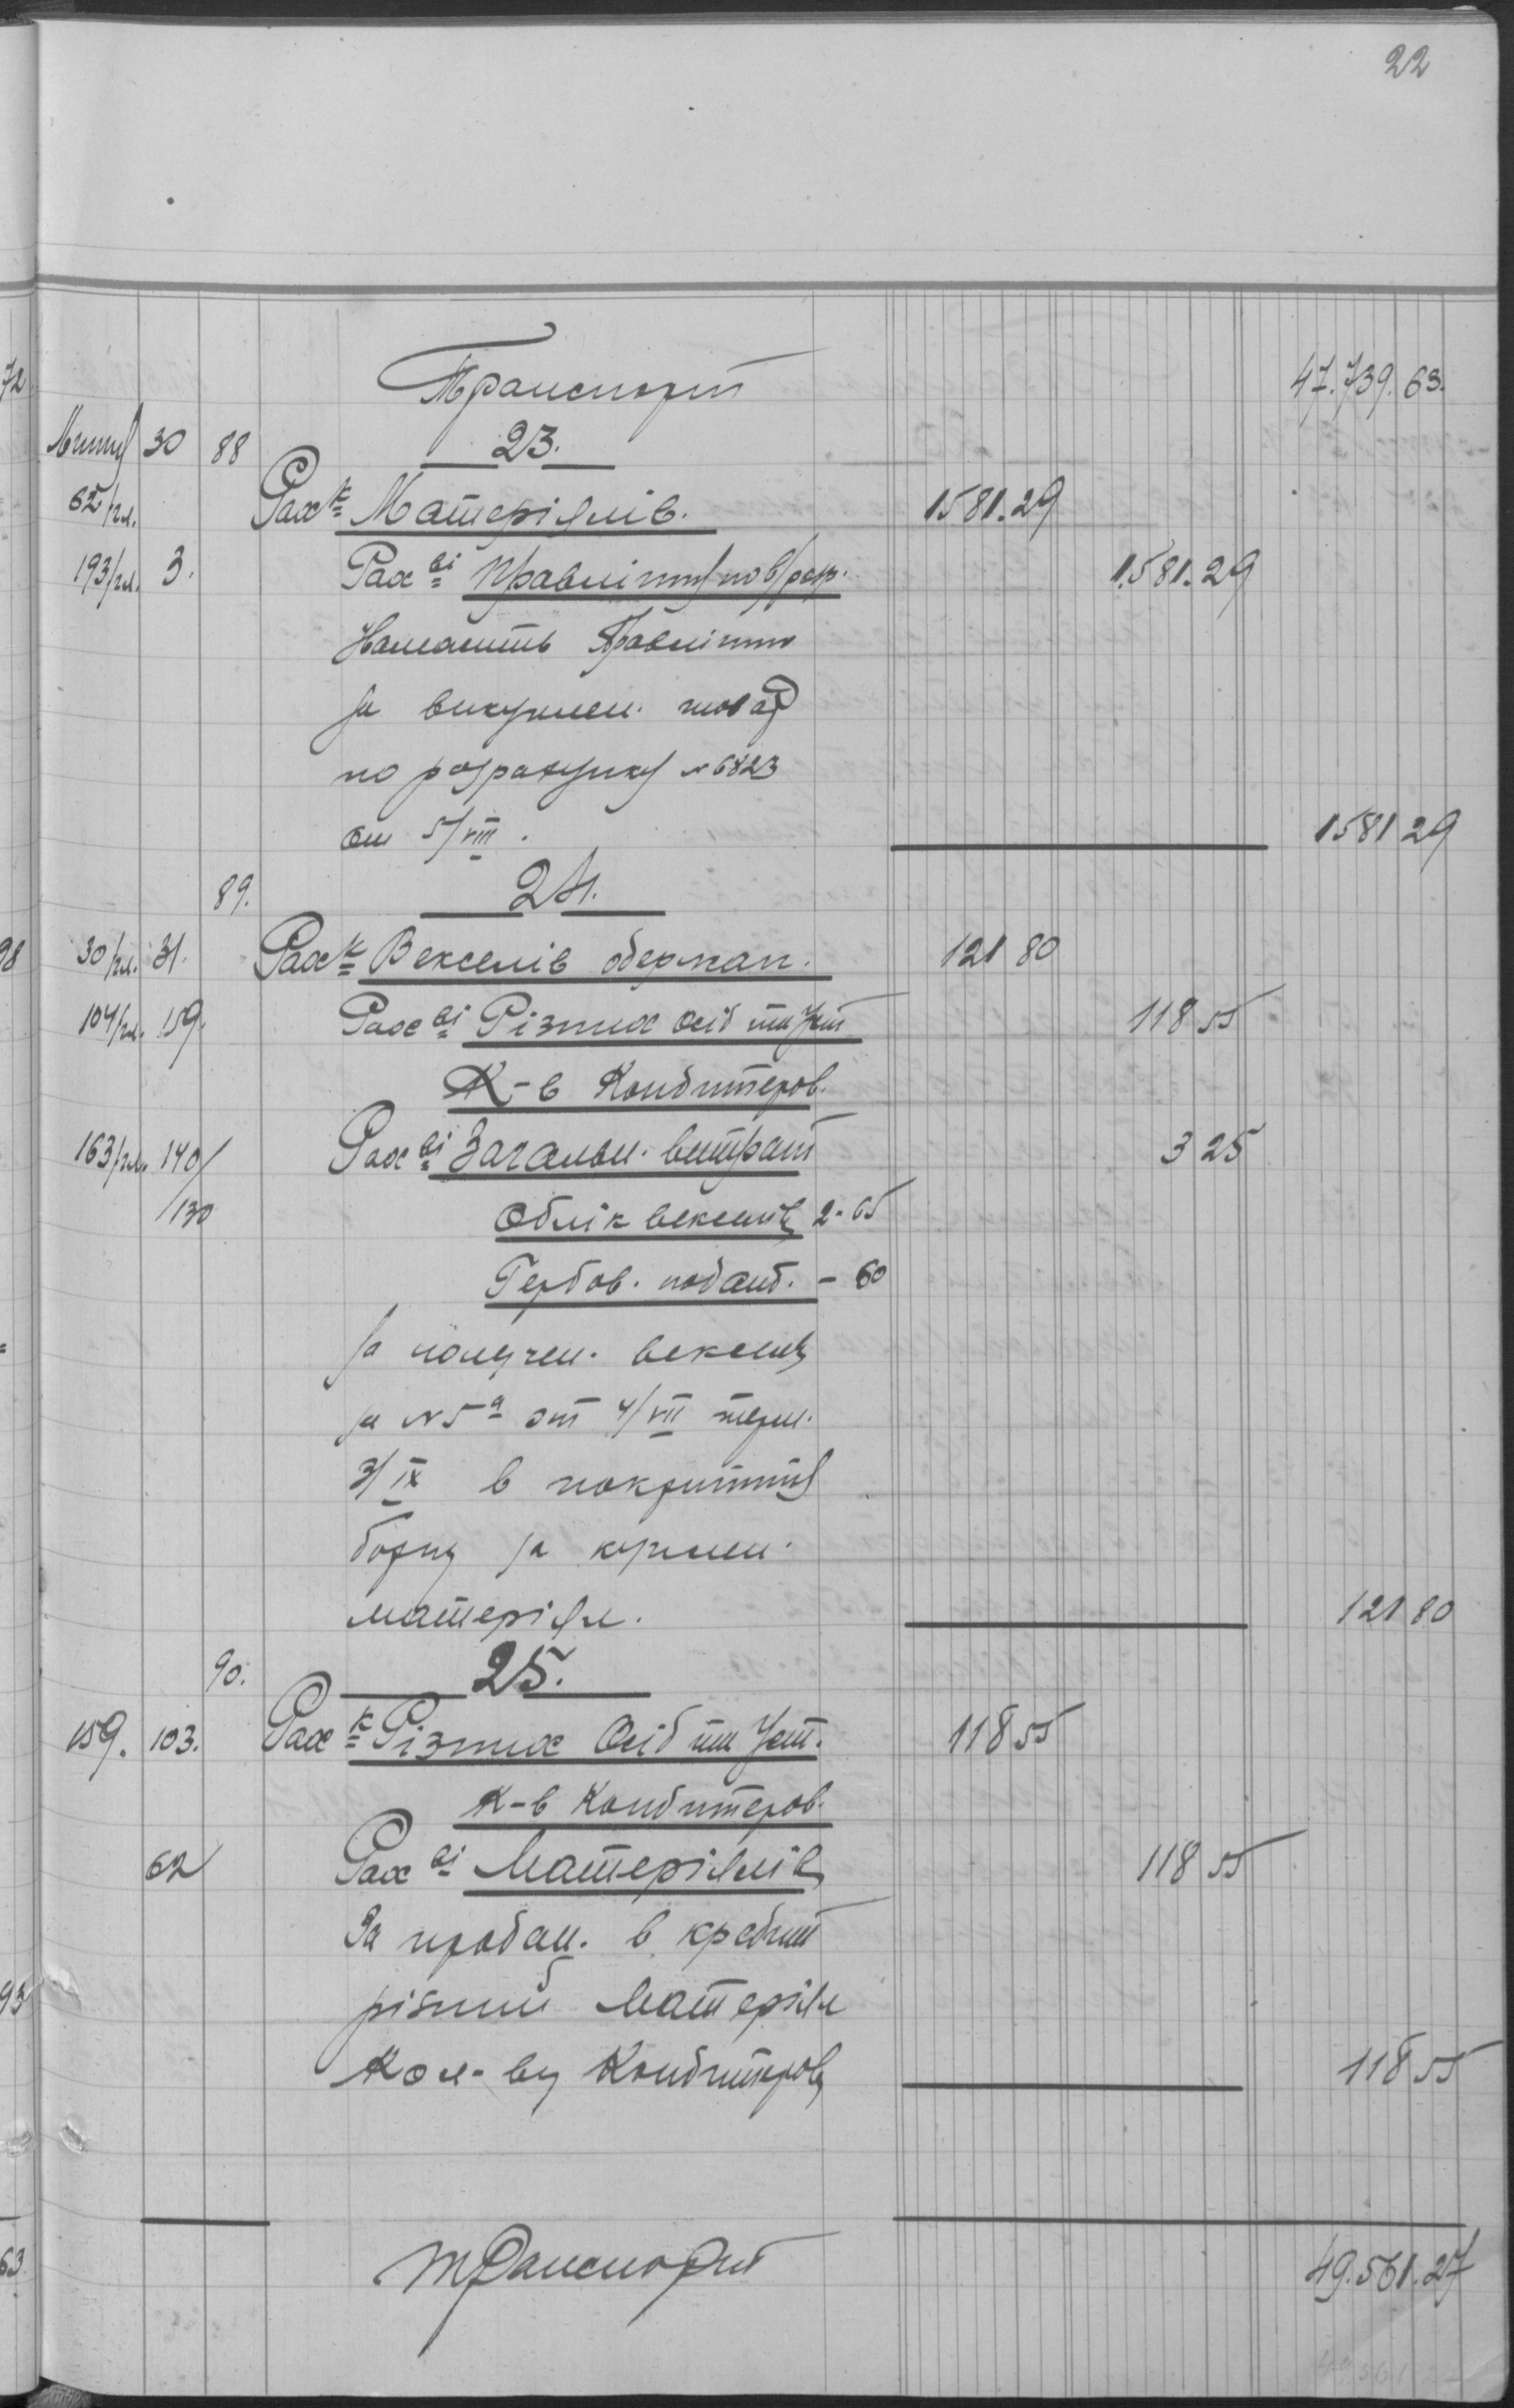 22
Транспорт 47.739.63.
30 88 23.
62/гл. Рах к Матеріялів. 1581.29
193/гл. 3. Рах ві Правлінню по в/розр. 1.581.29
Належить Правлінню
за викуплен. товар
по розрахунку № 6823
от 5/VIII. 1581 29
89. 24.
30/гл. 31. Рах к Векселів одержан. 121 80
104/гл. 159. Рах ві Різних осіб та Уст 118 55
К-в Кондитеров.
163/гл. 140/ Рах ві Загальн. витрат 3 25
/130 Облік векселів 2-65
Гербов. податк. - 60
за получен. векселів
за № 5а от 4/VII терм.
3/IX в покриття
боргу за куплен.
матеріял. 121 80
90. 25.
159. 103. Рах к Різних Осіб та Уст. 118 55
К-в Кондитеров.
62 Рах ві Матеріялів 118 55
За продан. в кредит
різний матеріял
Кол-ву Кондитеров 118 55
Транспорт 49.561.27